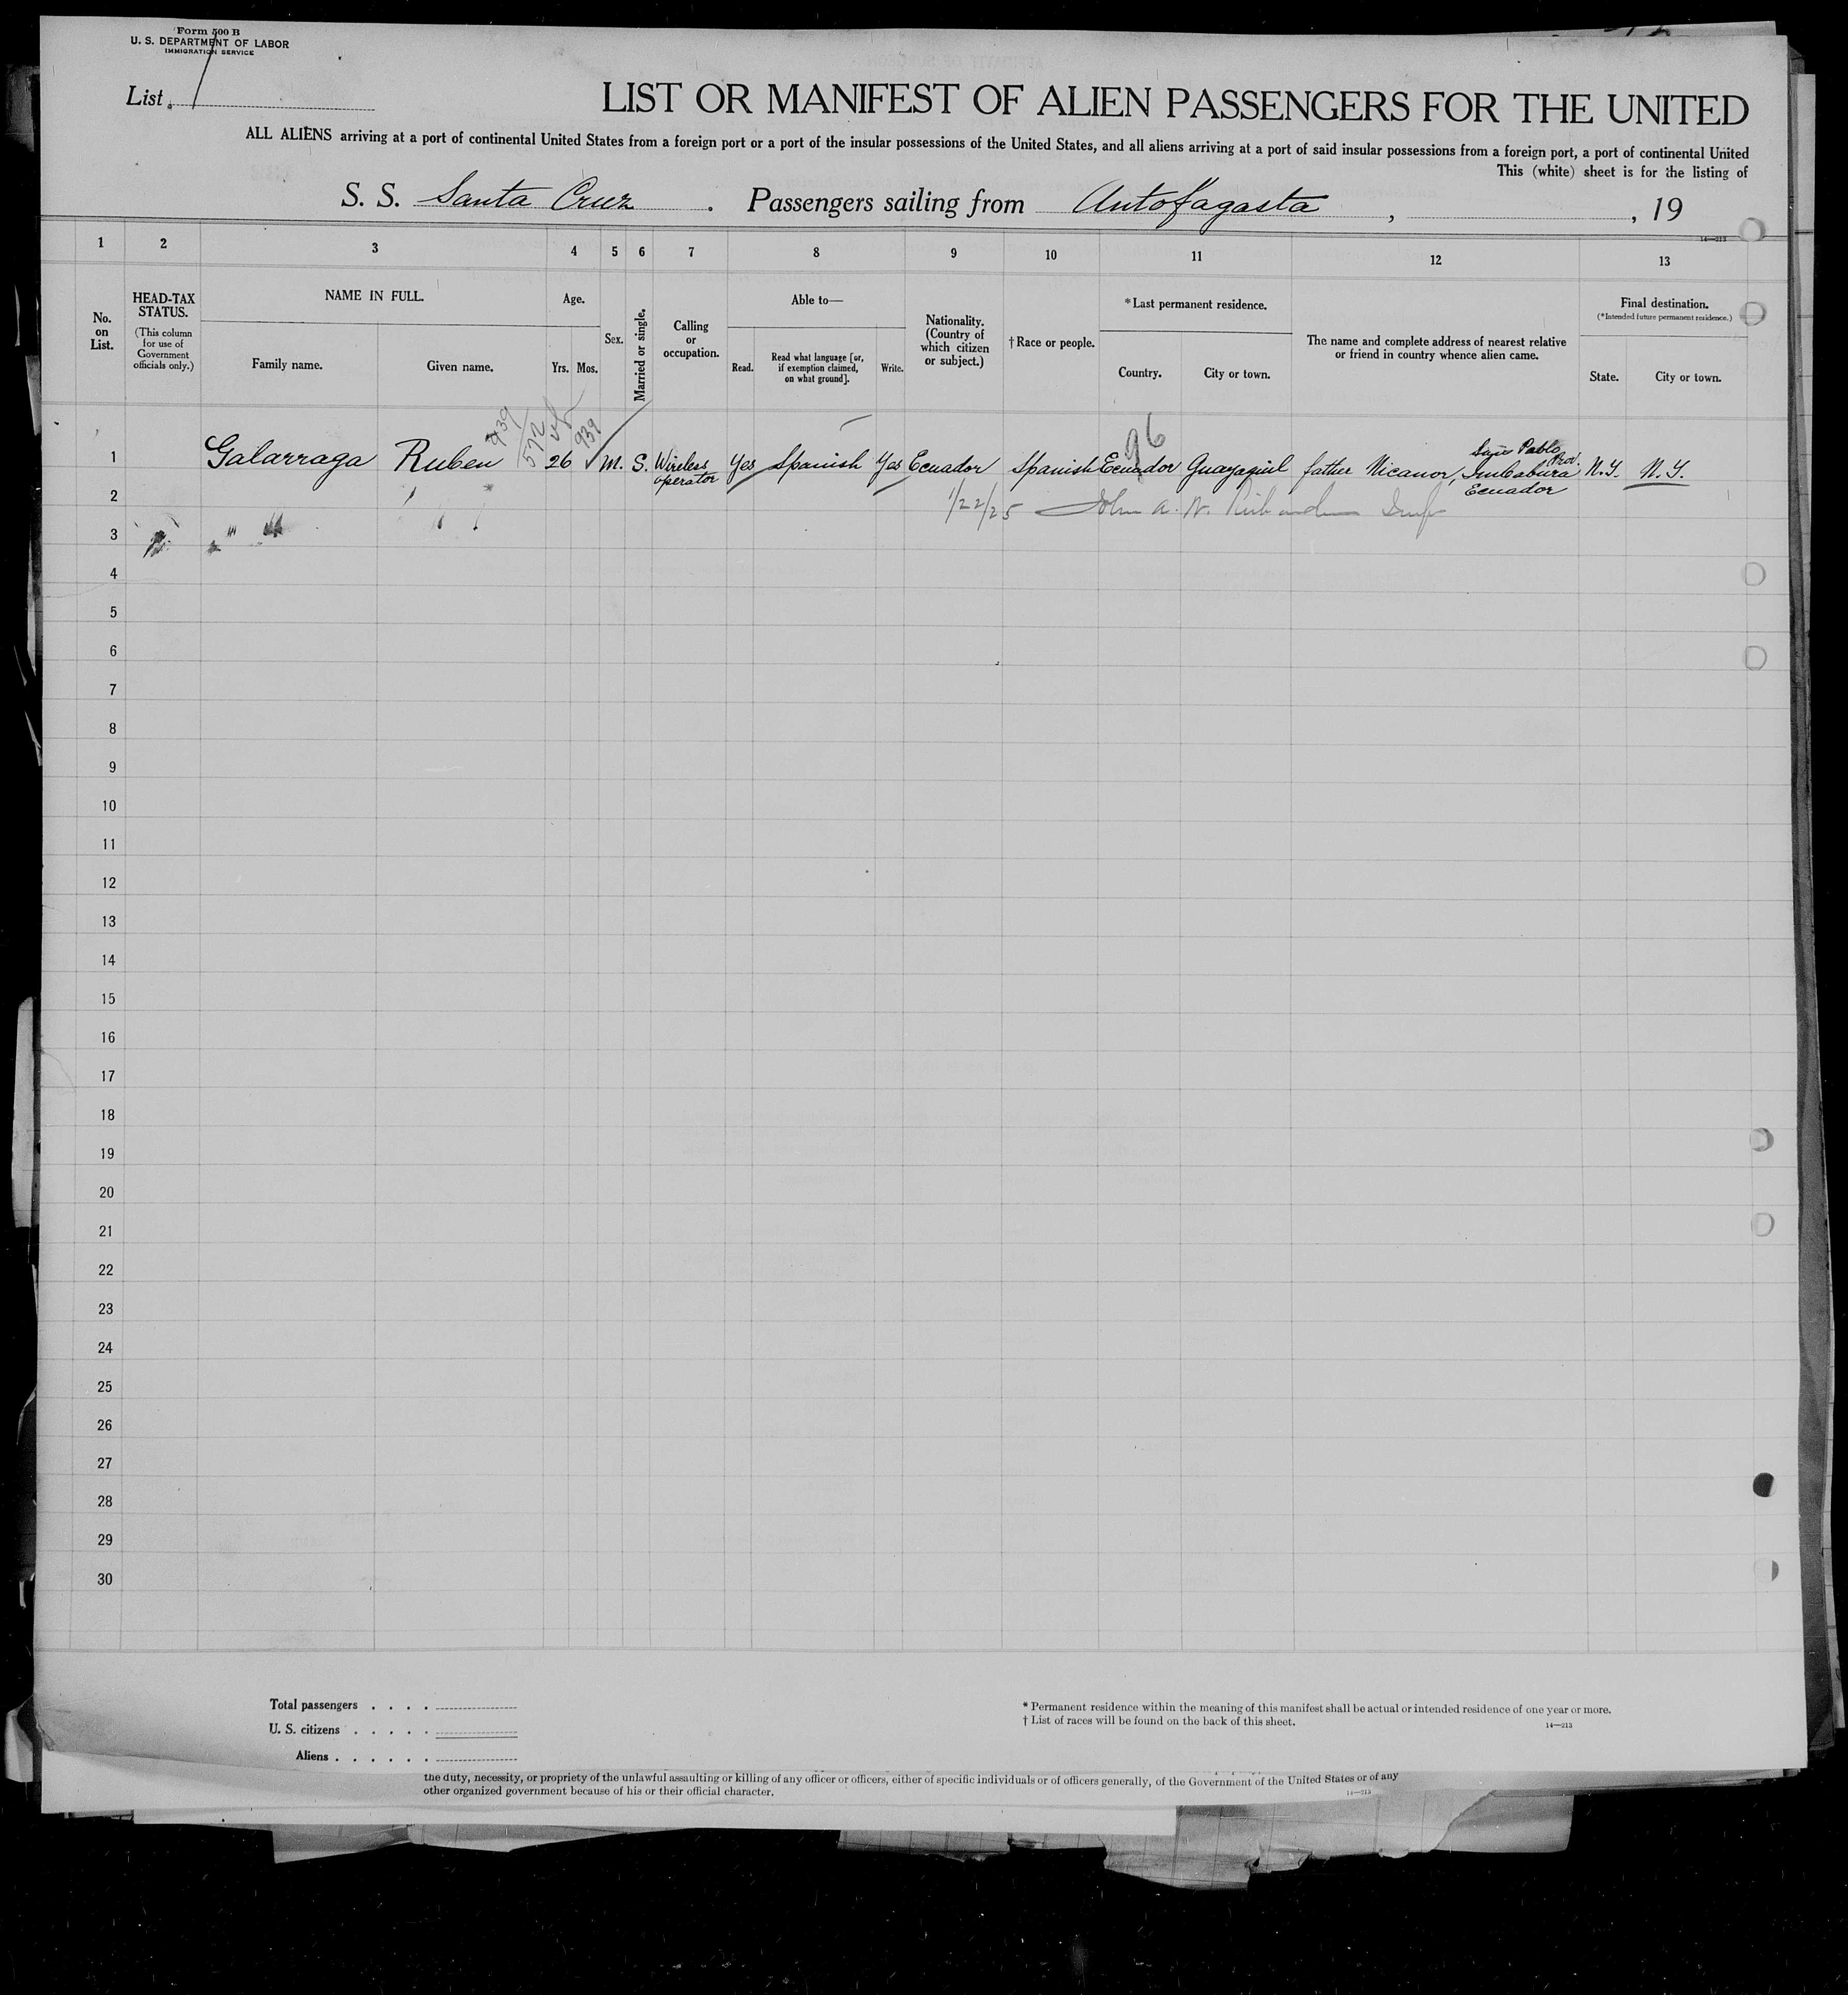 Form 500 B
U. S. DEPARTMENT OF LABOR
IMMIGRATION SERVICE
List 1
LIST OR MANIFEST OF ALIEN PASSENGERS FOR THE UNITED
ALL ALIENS arriving at a port of continental United States from a foreign port or a port of the insular possessions of the United States, and all aliens arriving at a port of said insular possessions from a foreign port, a port of continental United
This (white) sheet is for the listing of
S. S. Santa Cruz . Passengers sailing from Antofagasta , , 19
14—213
1 2 3 4 5 6 7 8 9 10 11 12 13
No. on List.
HEAD-TAX STATUS.
(This column for use of Government officials only.)
NAME IN FULL.
Family name. Given name.
Age.
Yrs. Mos.
Sex.
Married or single.
Calling or occupation.
Able to—
Read. Read what language [or, if exemption claimed, on what ground]. Write.
Nationality. (Country of which citizen or subject.)
†Race or people.
*Last permanent residence.
Country. City or town.
The name and complete address of nearest relative or friend in country whence alien came.
Final destination.
(*Intended future permanent residence.)
State. City or town.
939 572 939 96
1 Galarraga Ruben 26 M. S. Wireless operator Yes Spanish Yes Ecuador Spanish Ecuador Guayaquil father Nicanor, Pablo Imbabura Ecuador N.Y. N.Y.
2 1/22/25 John A. W.
3
4
5
6
7
8
9
10
11
12
13
14
15
16
17
18
19
20
21
22
23
24
25
26
27
28
29
30
Total passengers . . . .
U. S. citizens . . . . .
Aliens . . . . . .
* Permanent residence within the meaning of this manifest shall be actual or intended residence of one year or more.
† List of races will be found on the back of this sheet.
14—213
the duty, necessity, or propriety of the unlawful assaulting or killing of any officer or officers, either of specific individuals or of officers generally, of the Government of the United States or of any
other organized government because of his or their official character.
14—213